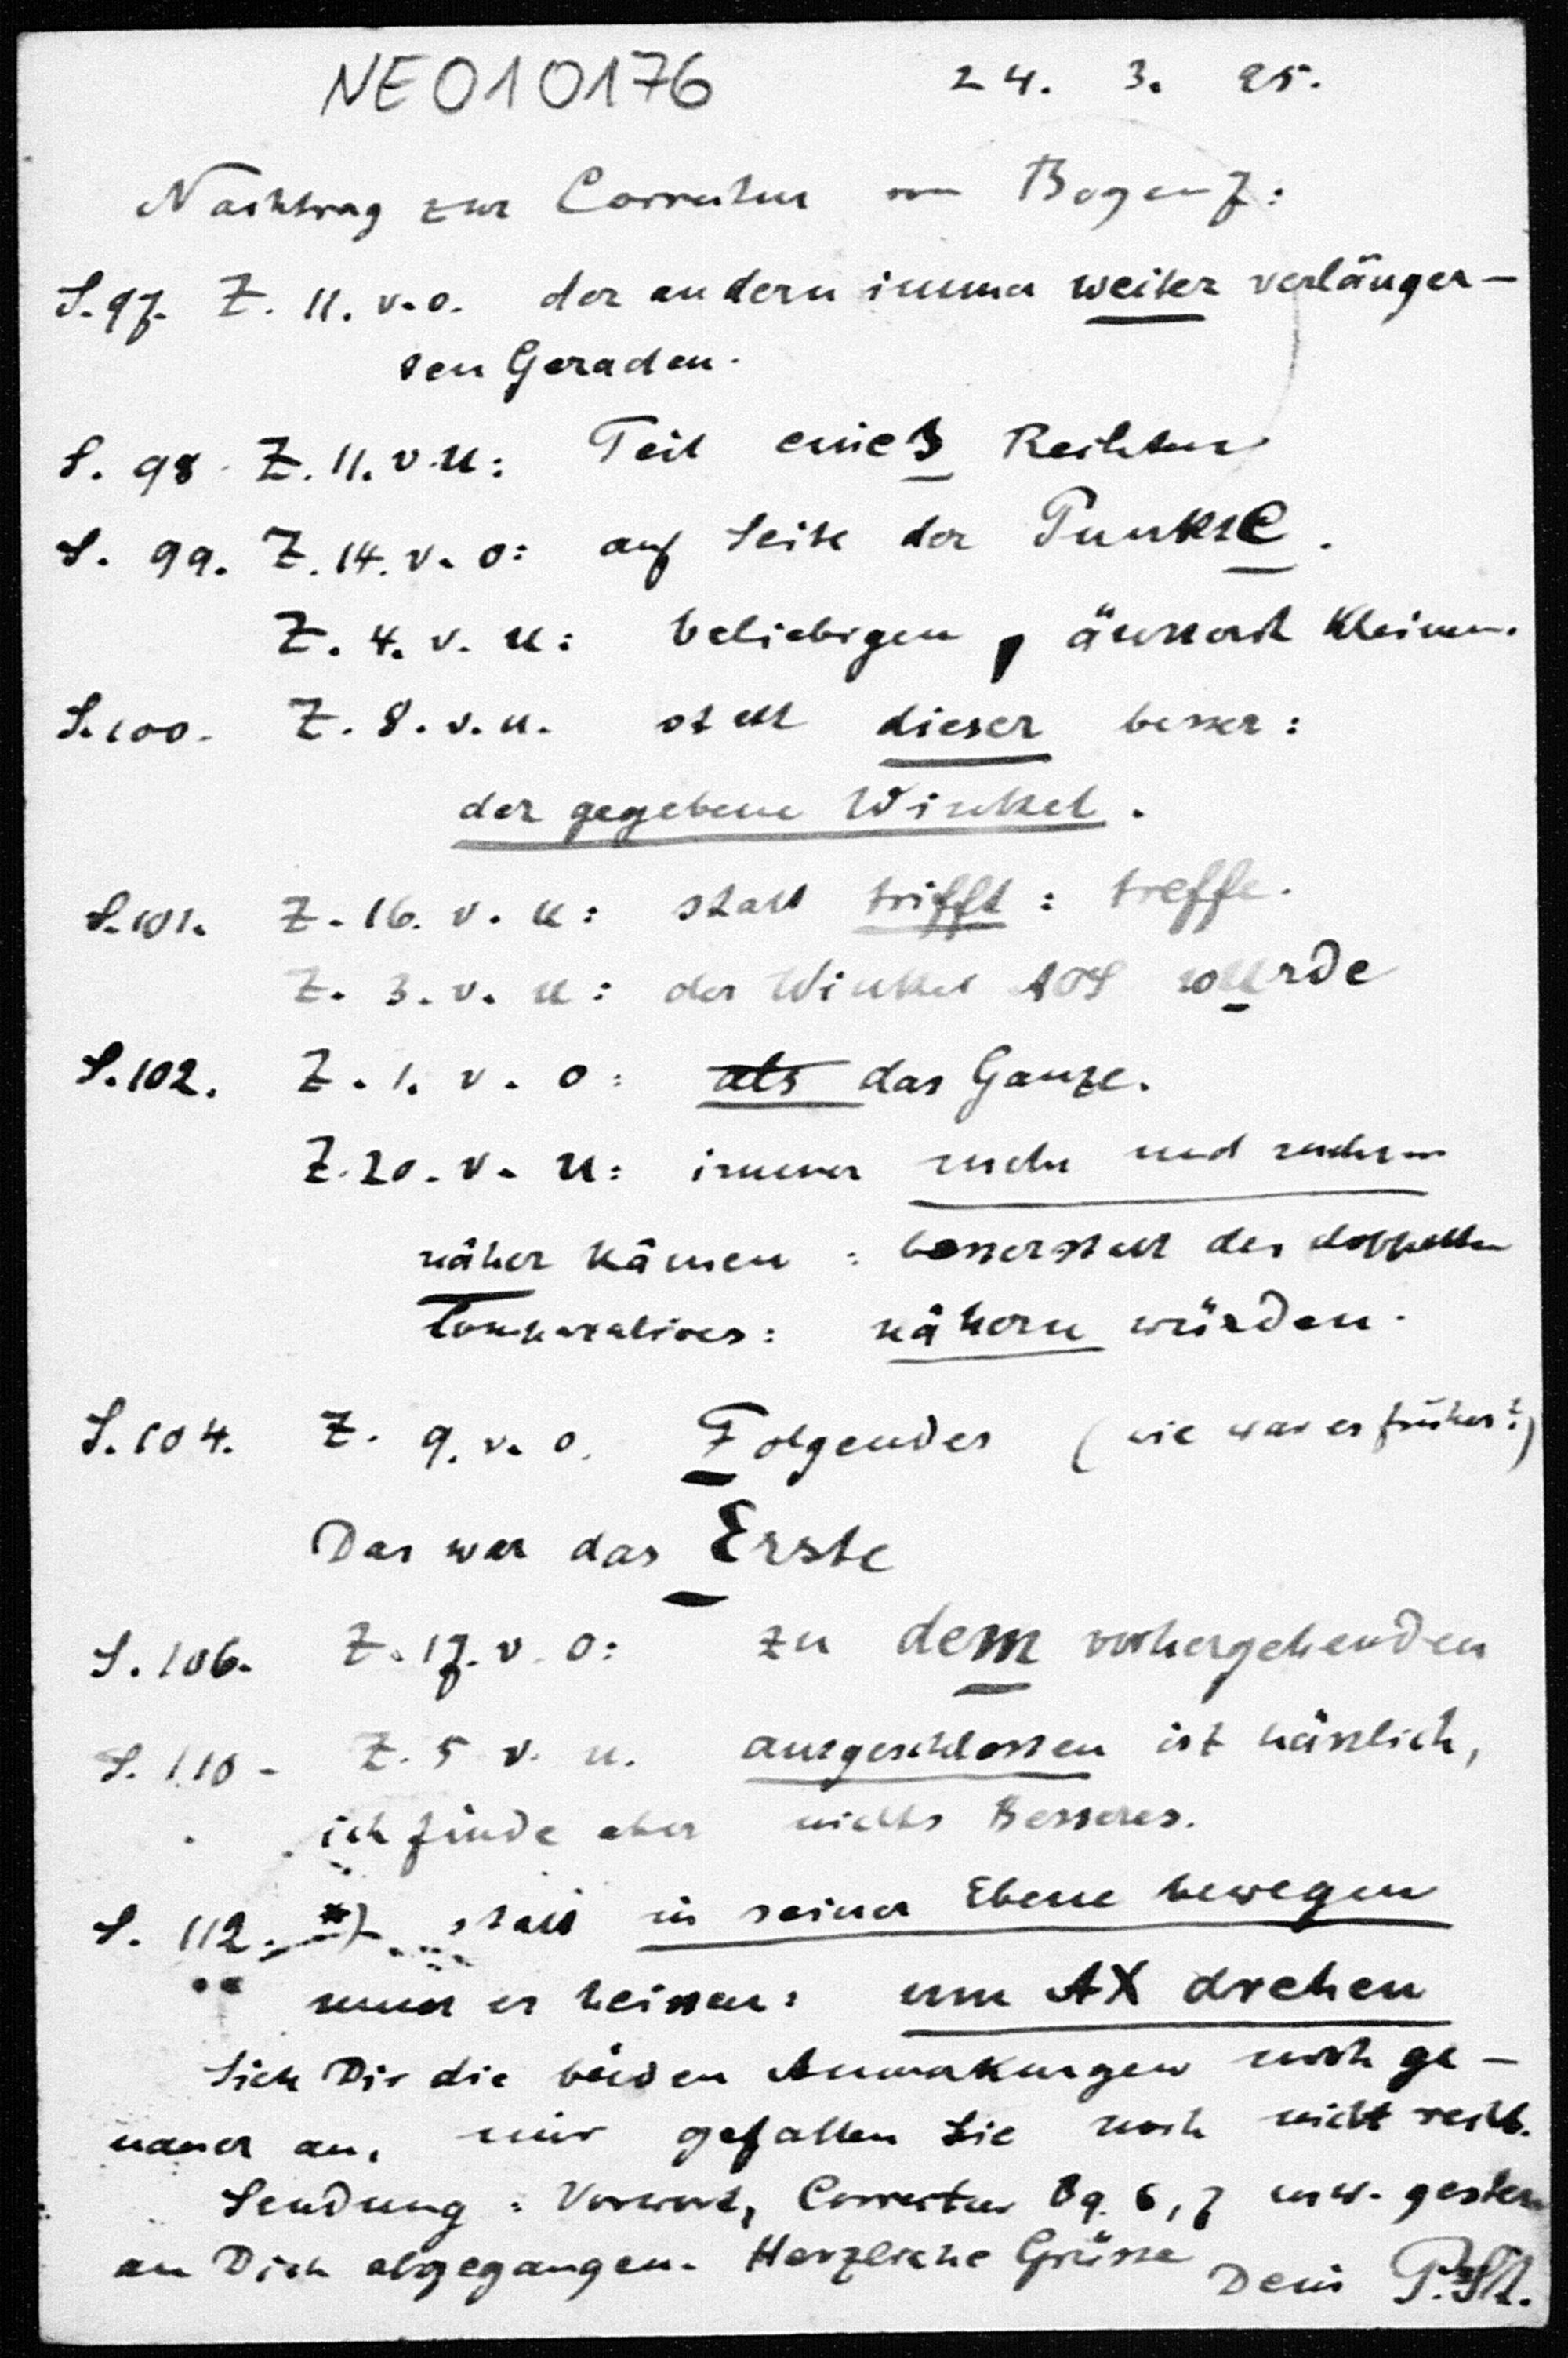 NE010176 24. 3. 95.
Nachtrag zur Correctur von Bogen 7:
S. 97. Z. 11. v. o. der andern immer weiter verlänger-
ten Geraden.
S. 98 Z. 11. v. u: Teil eines Rechten
S. 99. Z. 14. v. o: auf Seite der Punkte.
Z. 4. v. u: beliebigen, äusserst kleinen.
S. 100. Z. 8. v. u. statt dieser besser:
der gegebene Winkel.
S. 101. Z. 16. v. u: statt trifft: treffe.
Z. 3. v. u: der Winkel wurde
S. 102. Z. 1. v. o: als das Ganze.
Z. 20. v. u: immer mehr und mehr
näher kämen: besser statt des doppelten
Comparatives: nähern würden.
S. 104. Z. 9. v. o. Folgendes (wie war es früher?)
Das war das Erste
S. 106. Z. 17. v. o: zu dem vorhergehenden
S. 110 - Z. 5 v. u. ausgeschlossen ist hässlich,
ich finde aber nichts Besseres.
S. 112. *) statt in seiner Ebene bewegen
muss es heissen: um AX drehen
Sieh Dir die beiden Anmerkungen noch ge-
nauer an, mir gefallen Sie noch nicht recht.
Sendung: Vorwort, Correctur Bg. 6, 7 usw. gestern
an Dich abgegangen. Herzliche Grüsse Dein P. St.